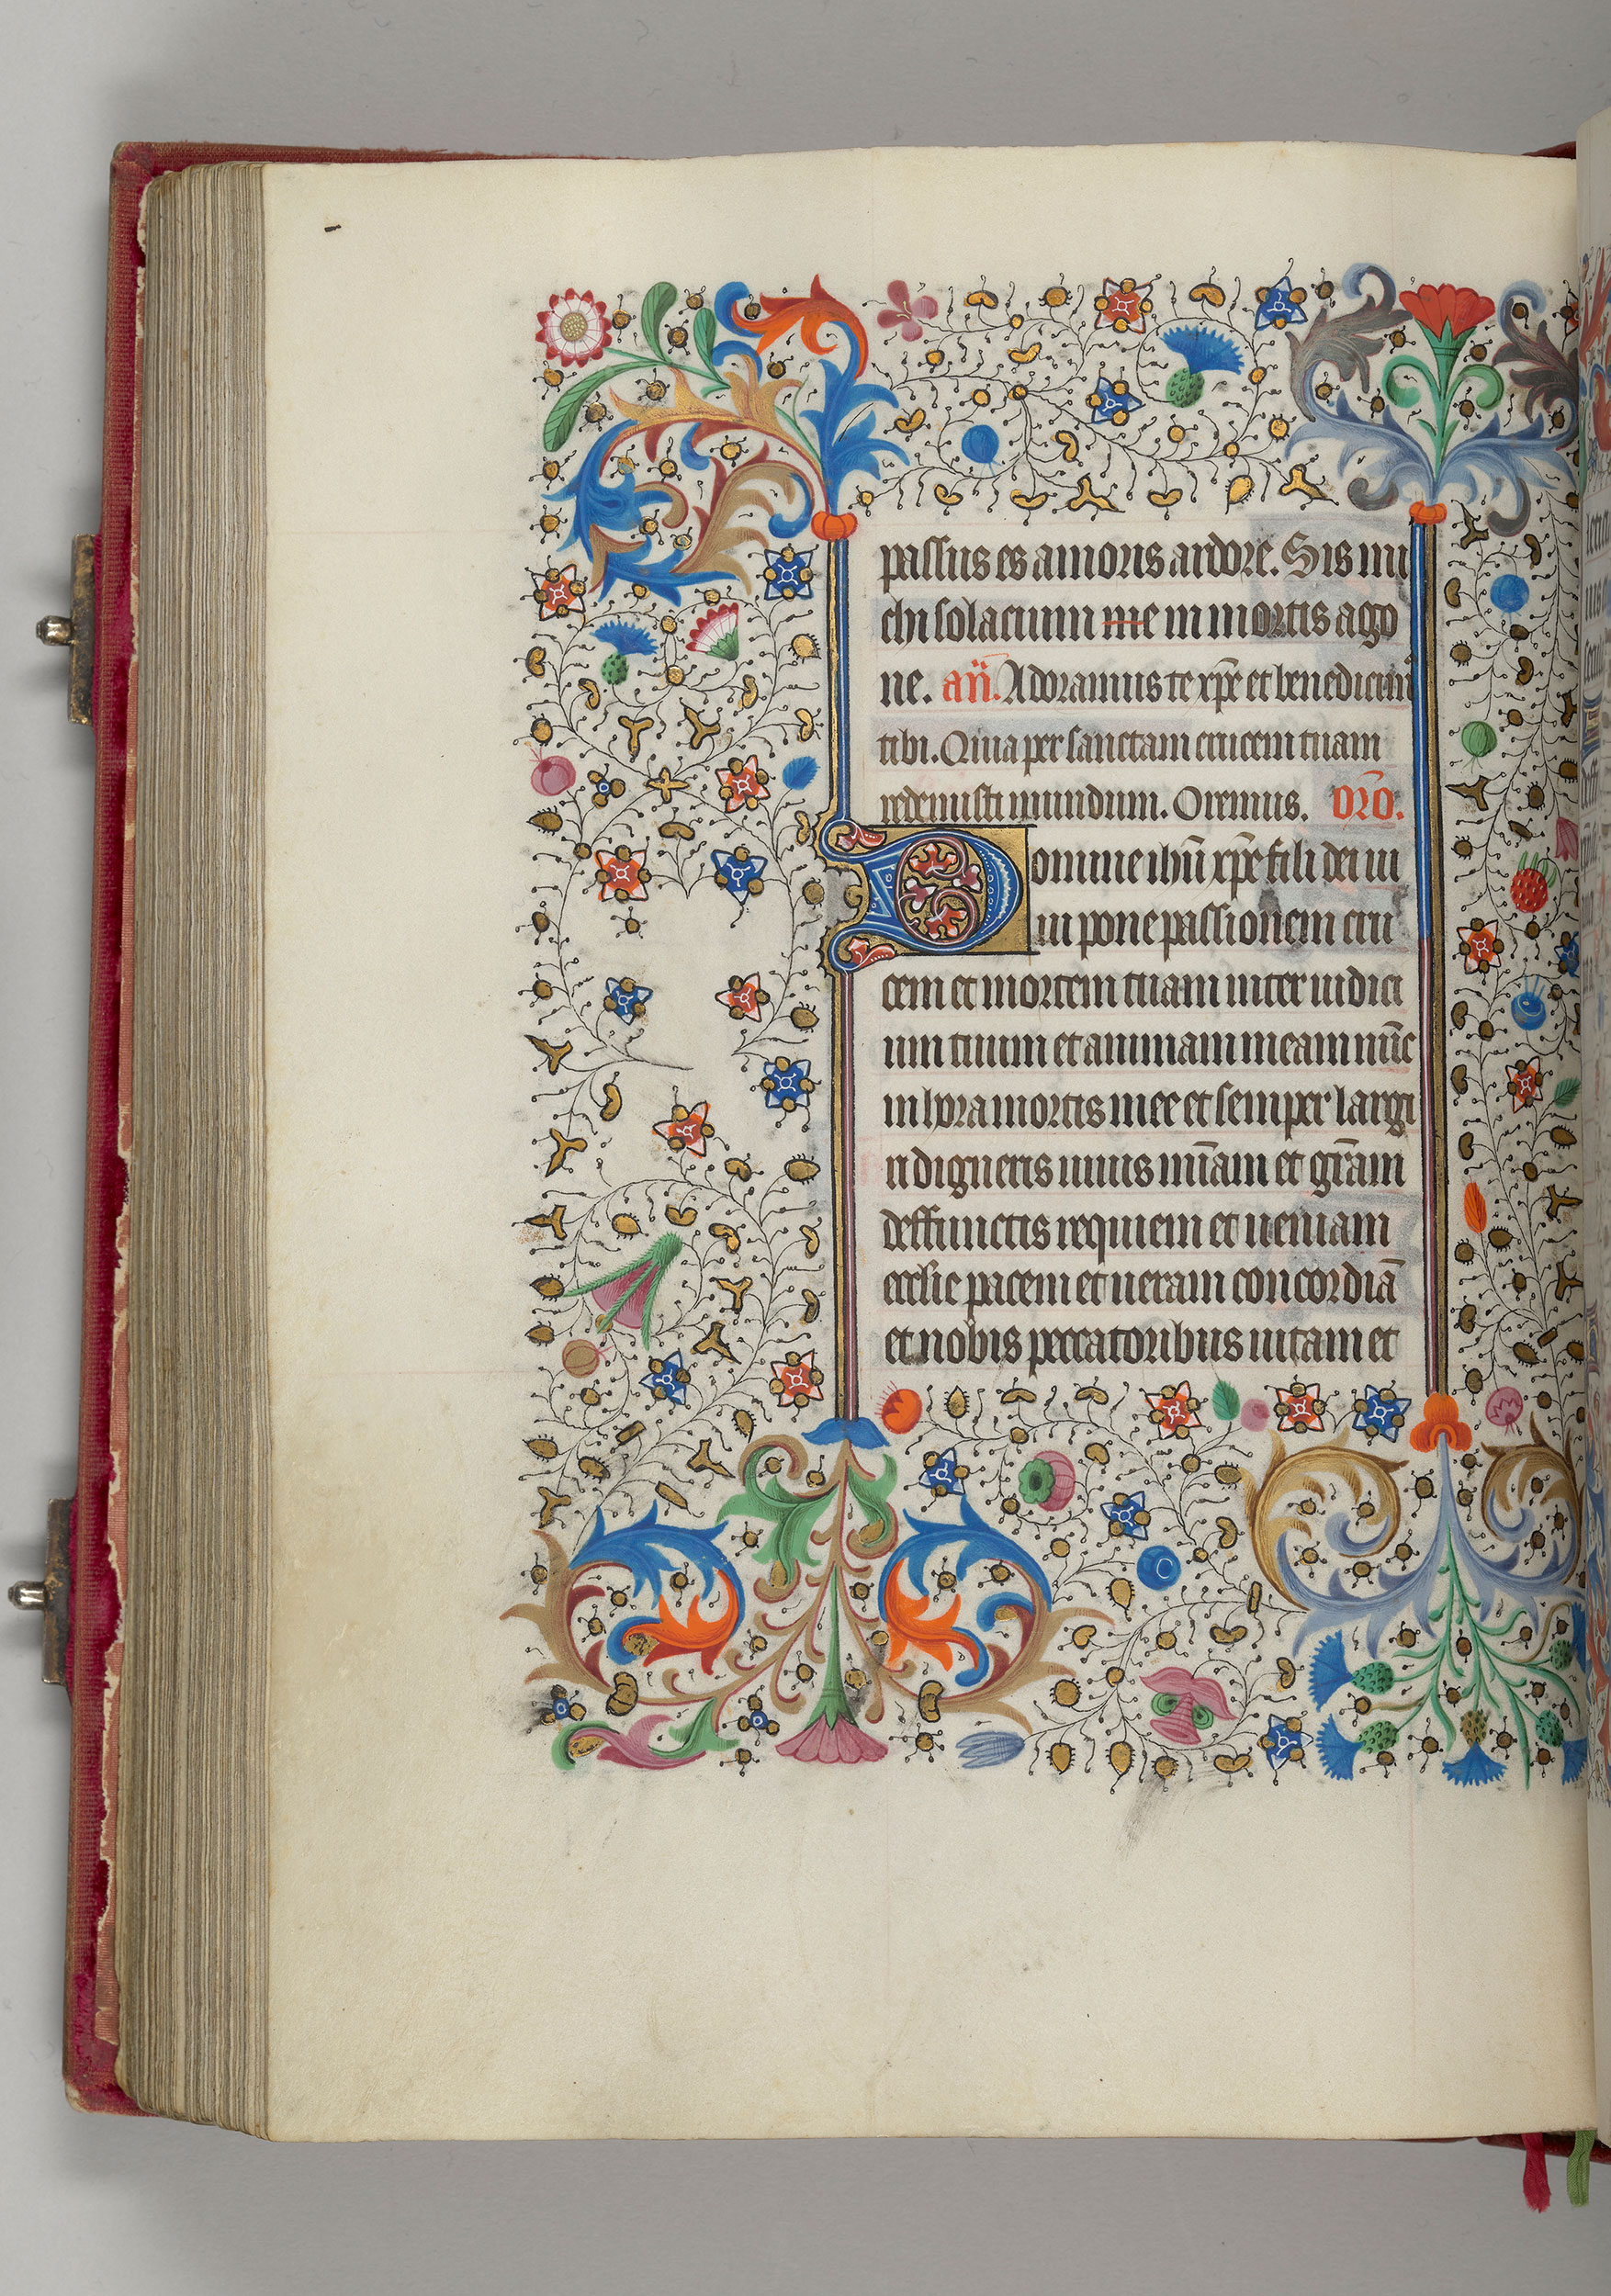 passus es amoris ardore. Sis mi
chi solacium me in mortis ago
ne. an̄. Adoramus te xp̄e et benedicim̄
tibi. Quia per sanctam crucem tuam
redemisti mundum. Oremus. or̄o.
Domine ih̄u xp̄e fili dei ui
ui pone passionem cru
cem et mortem tuam inter iudici
um tuum et animam meam nūc
in hora mortis mee et semper largi
ri digneris uiuis mīam et gr̄am
deffunctis requiem et ueniam
ecclie pacem et ueram concordiā
et nobis peccatoribus uitam et